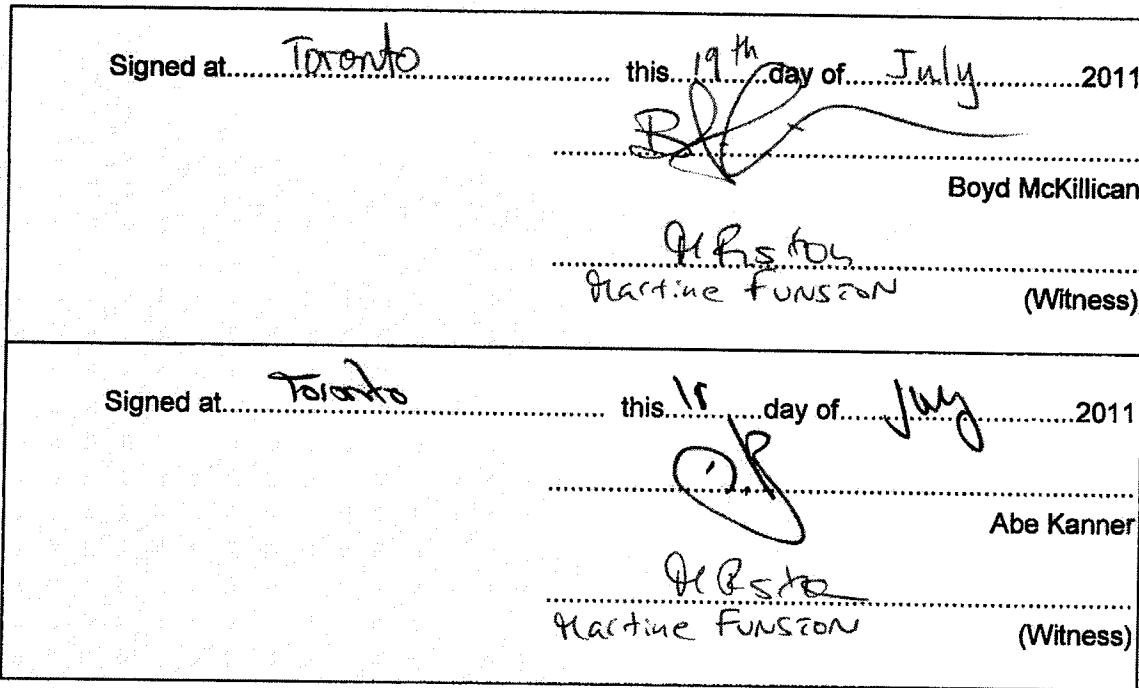 Signed at.......Toronto....... this 19th day of.....July.....2011
Boyd McKillican
Martine FUNSTON
(Witness)
Signed at.......Toronto....... this.......day of.....July.....2011
Abe Kanner
Martine FUNSTON
(Witness)